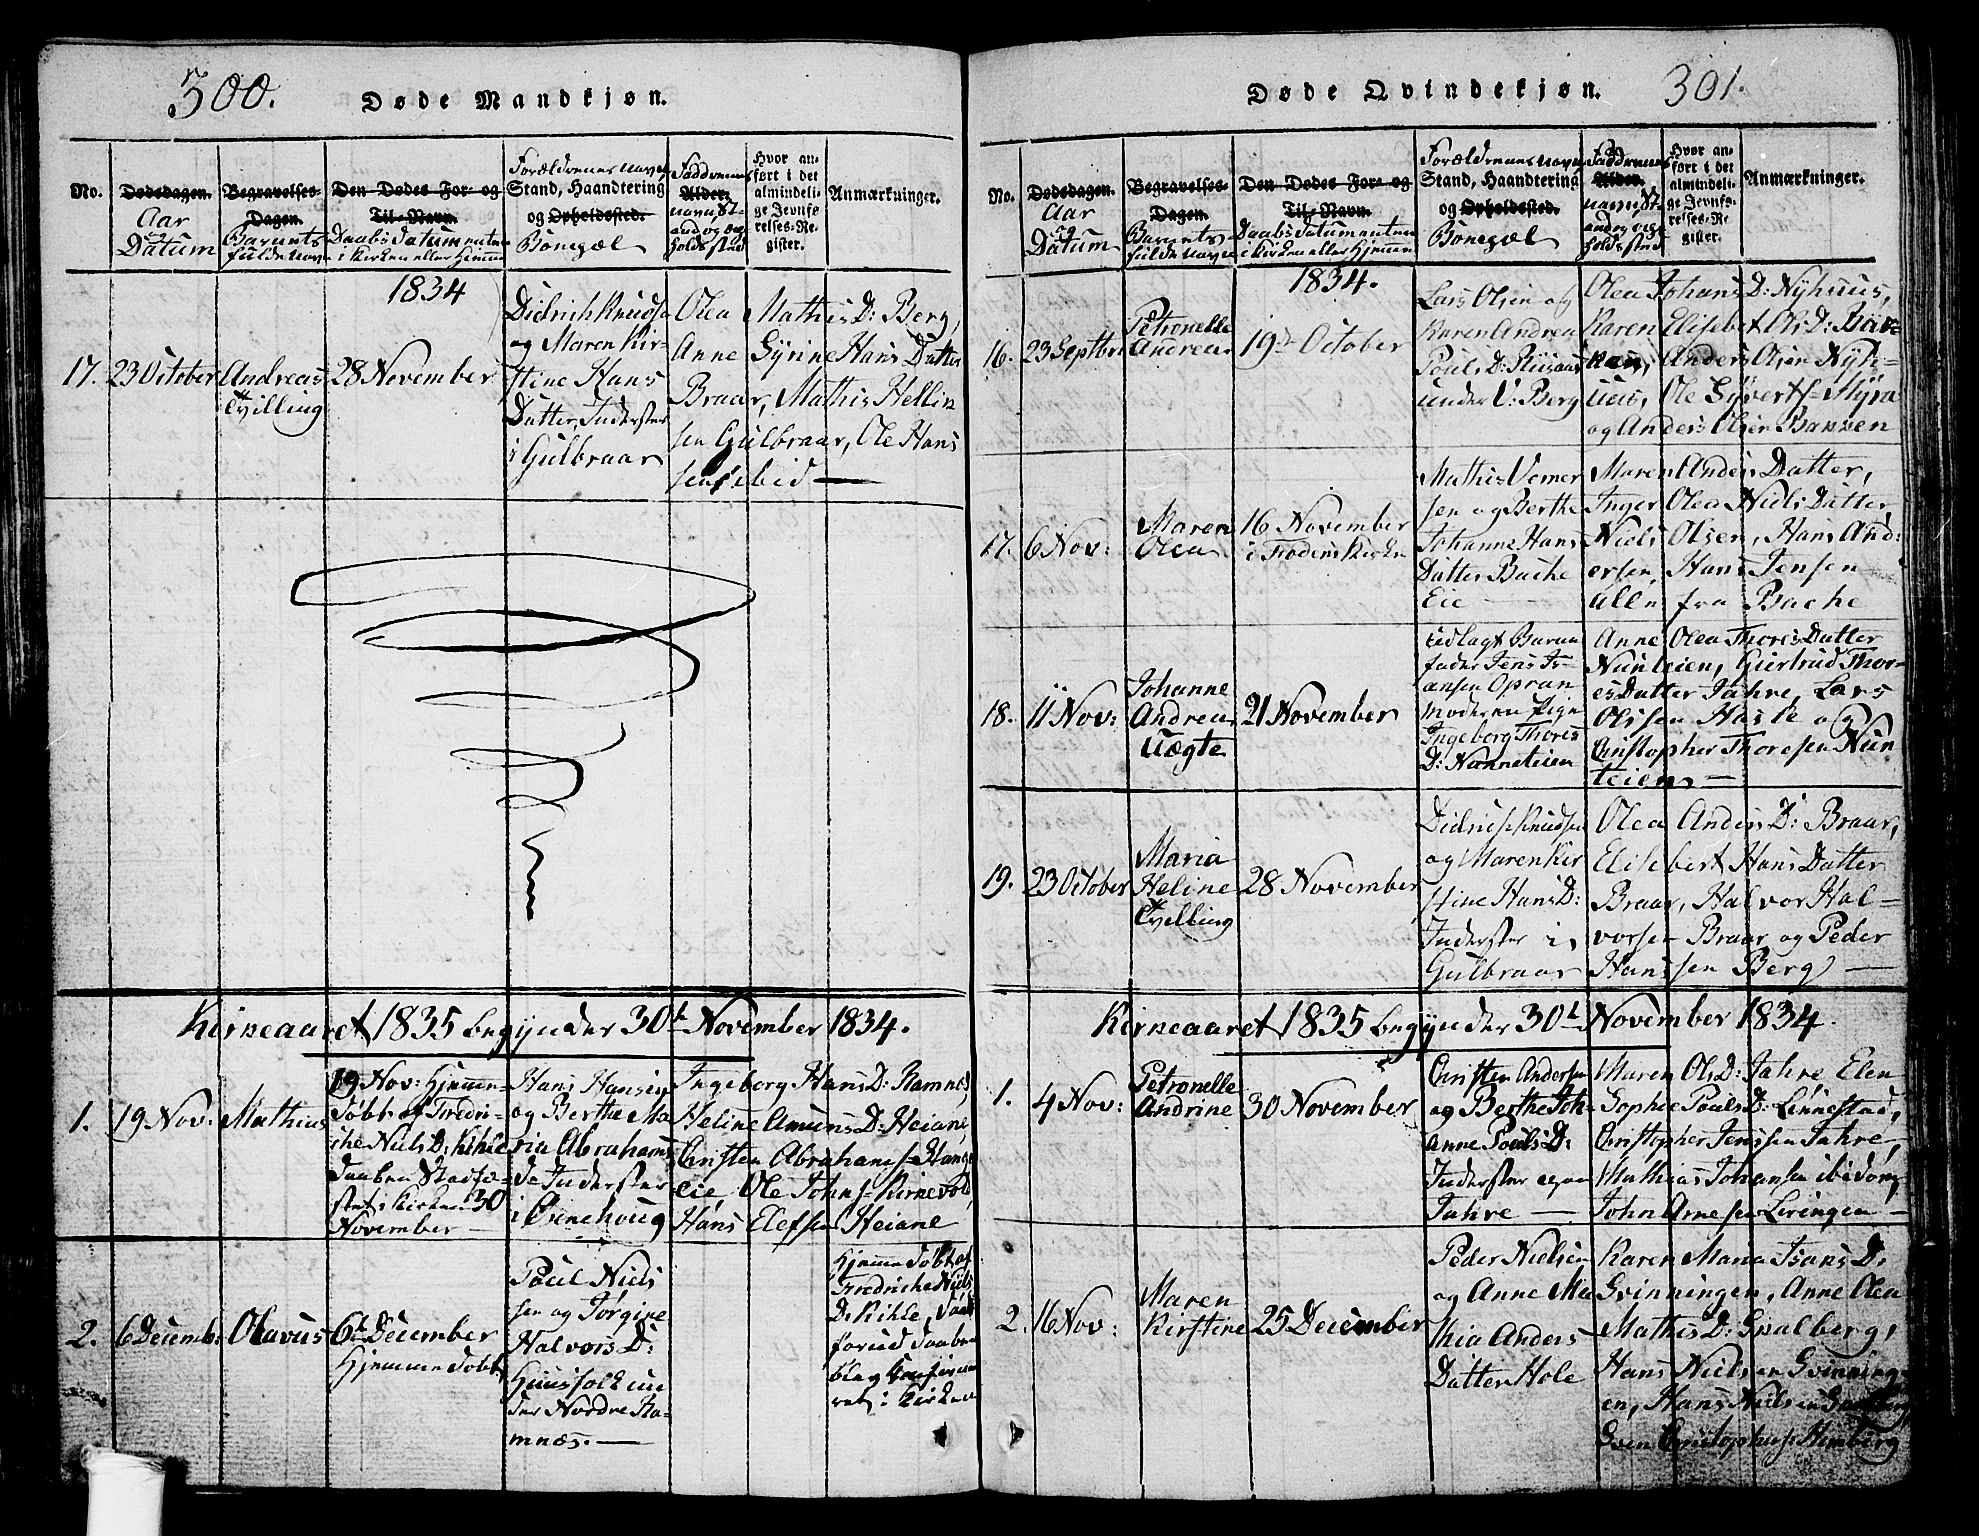 300.
Døde Mandkjøn.
No.
Dødsdagen.
Aar
og
Datum
Begravelses-
Dagen.
Barnets
fulde Navn
Den Dødes For- og
Til-Navn.
Daabs Datum enten
i Kirken eller Hjemme
Forældrenes Navn
Stand, Haandtering
og Opholdssted.
Bonegæl
Faddrenes
Alder.
Navn St-
and og op-
holdssted
Hvor an-
ført i det
almindeli-
ge Jevnfø
relses-Re-
gister.
Anmærkninger.
1834
17. 23 October
Andreas
Tvilling
28 November
Didrich Knuds
og Maren Kir-
stine Hans
Datter, Inderster
i Gulbraar
Olea Mathis D: Berg,
Anne Syrine Hans Datter
Braar, Mathis Hellin
sen Gulbraar, Ole Hans
sen ibid —
Kirneaaret 1835 begynder 30t November 1834.
1. 19 Nov.
Mathias
19 Nov: Hjemme-
døbt af Fredri-
che Niels D: Kihle
Daaben Stadfæ-
stet i Kirken 30
November —
Hans Hansen
og Berthe Ma
ria Abrahams
D: Inderster
i Ørnehoug
Ingeborg Hans D: Ramnes,
Heline Amuns D: Heiane,
Christen Abrahams Hange
eie Ole Johns Kirnevold,
Hans Elefsen Heiane
2. 6 Decemb:
Olavus
6te December
Hjemme Døbt
Poul Niels
sen og Jørgine
Halvors D:
Huusfolk un
der Nordre Ra-
mnæs. —
Hjemme Døbt af
Fredriche Niels
D: Kihle,
Daaben
blev Confirme
ret i Kirken
Døde Qvindekjøn.
301.
No.
Dødsdagen.
Aar
og
Datum
Begravelses-
Dagen.
Barnets
fulde Navn
Den Dødes For- og
Til-Navn.
Daabs Datum enten
i Kirken eller Hjemme
Forældrenes Navn
Stand, Haandtering
og Opholdssted.
Bonegæl
Faddrenes
Alder.
Navn St-
and og op-
holdssted
Hvor an-
ført i det
almindeli-
ge Jevnfø-
relses-Re-
gister.
Anmærkninger.
1834.
16. 23 Septbr
Petronelle
Andrea
19de October
Lars Olsen og
Karen Andrea
Pouls D:
under V: Berg
Olea Johans D: Nyhuus,
Karen Elisebet Ols D: Bax-
ken, Anders Olsen Nyh-
uus, Ole Syverts- Myra
og Anders Olsen Baxxen
17. 6 Nov:
Maren
Olea
16 November
i Frodens Kirke
Mathis Verner
sen og Berthe
Johanne Hans
Datter Bache
Eie —
Maren Anders Datter,
Inger Olea Niels Datter,
Niels Olsen, Hans And:
ersen, Hans Jensen
alle fra Bache
18. 11 Nov:
Johanne
Andrea
Uægte
21 November
Udlagt Barne
fader Jens
Moderen Pige
Ingeborg Thores
D: Nunneteien
Anne Olea Thores Datter
Nunteien, Giertrud Thor-
es Datter Jahre, Lars
Olssen Haske og
Christopher Thoresen Nun
teien —
19. 23 October
Maria
Heline
Tvilling
28 November
Didrich Knudsen
og Maren Kir
stine Hans D:
Inderster i
Gulbraar
Olea Anders D: Braar,
Elisebert Hans Datter
Braar, Halvor Hal-
vorsen Braar og Peder
Hanssen Berg —
Kirneaaret 1835 begynder 30t November 1834.
1. 4 Nov:
Petronelle
Andrine
30 November
Christen Andersen
og Berthe Joh-
anne Pouls D:
Inderster
Jahre —
Maren Ols D: Jahre Elen
Sophie Pouls D: Linnestad,
Christopher Jenssen Jahre,
Mathias Johansen ibidem,
John Arnesen Liringen —
2. 16 Nov:
Maren
Kirstine
25 December
Peder Nielsen
og Anne Ma
thia Anders
Datter Hole
Karen Maria Isans D:
Svinningen, Anne Olea
Mathis D: Svalberg,
Hans Nielsen Svinning-
en, Hans Nielsen
Sven Christophers Himberg